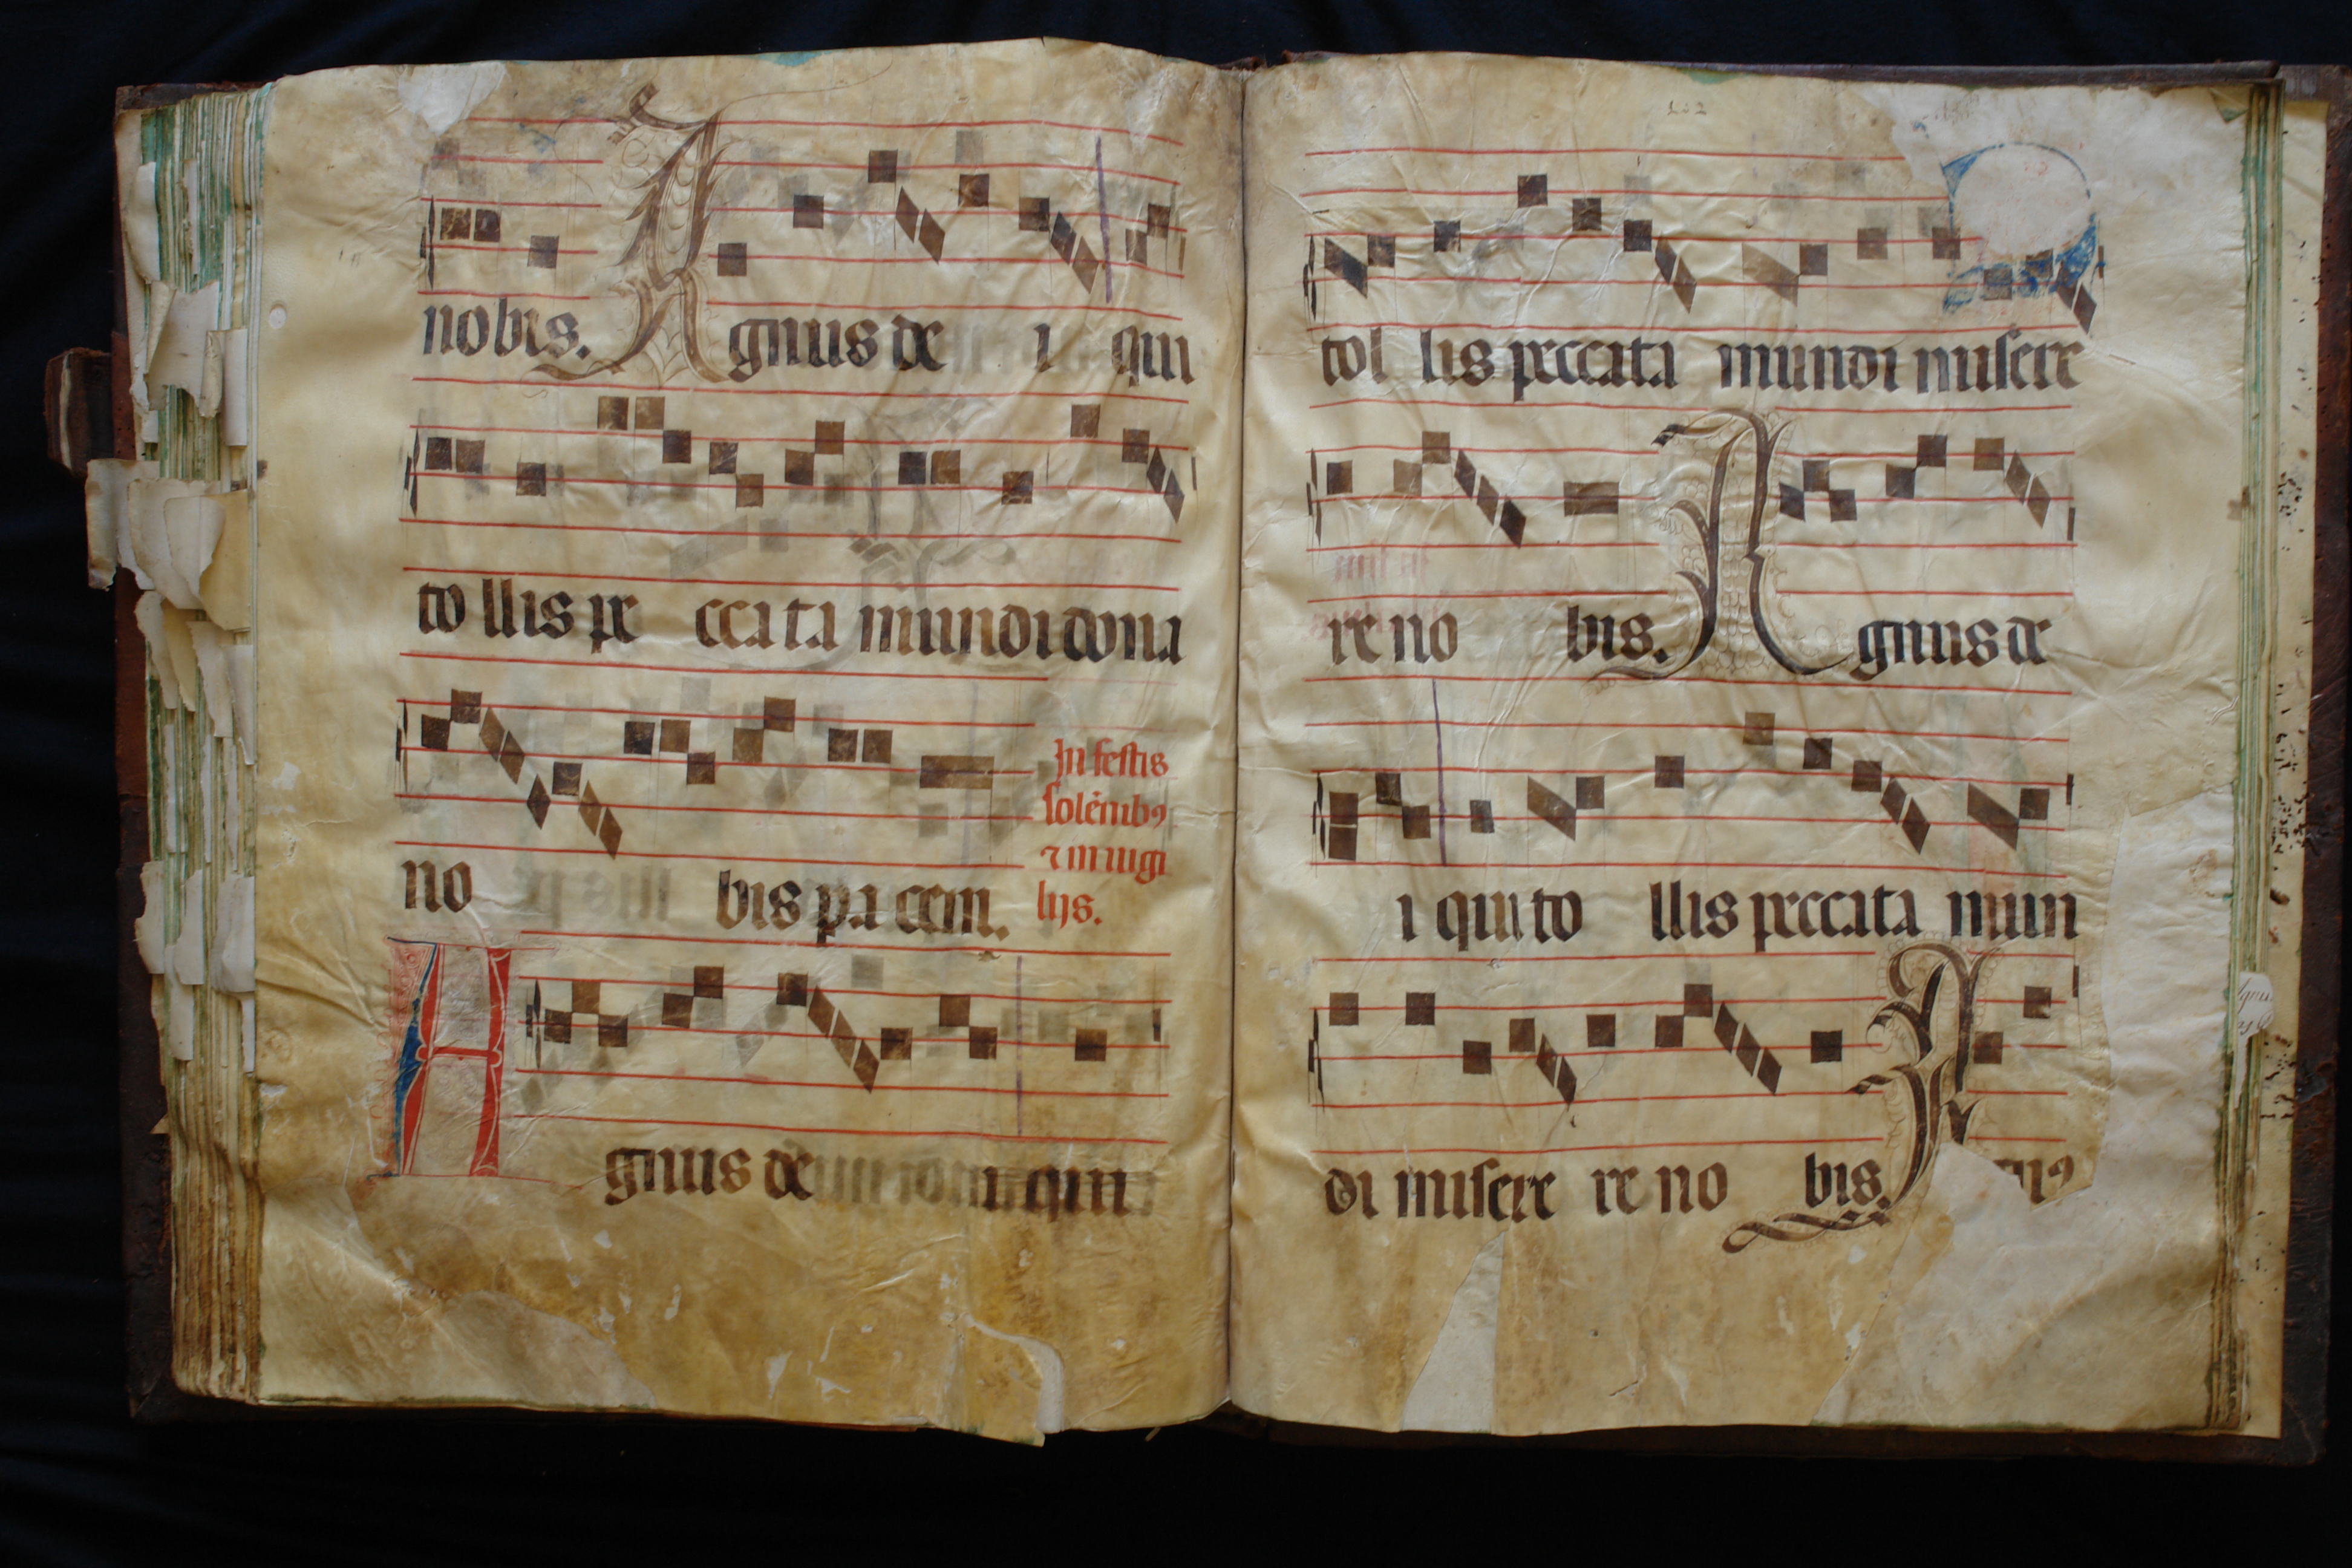 nobis. Agnus de i qui
to llis pe ccata mundi dona
In festis
solēnibꝰ
⁊ in uigi
lijs.
no bis pa cem.
Agnus de i qui
tol lis peccata mundi misere
re no bis. Agnus de
i qui to llis peccata mun
di misere re no bis. A